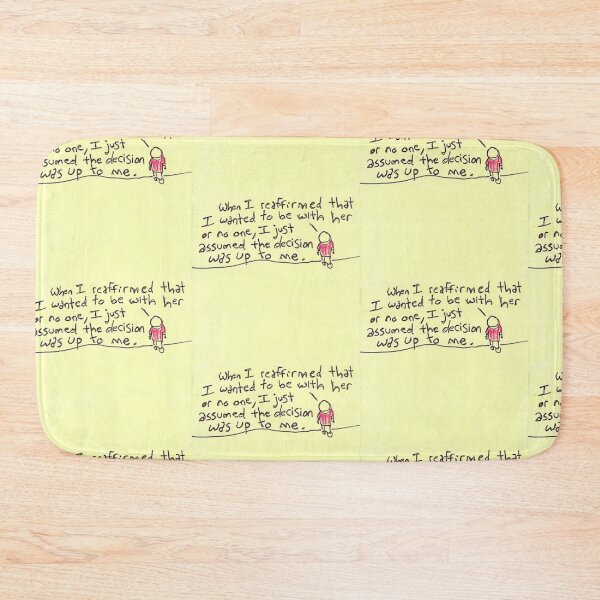 no one, I just
sumed the decision
was up to me.
or no one, I just
assumed the decision
was up to me.
When I reaffirmed that
I wanted to be with her
or no one, I just
assumed the decision
was up to me.
When I reaffirmed that
I wanted to be with her
or no one, I just
assumed the decision
was up to me.
When I reaffirmed that
I wanted to be with her
or no one, I just
assumed the decision
was up to me.
When I reaffirmed that
I wanted to be with her
or no one, I just
assumed the decision
was up to me.